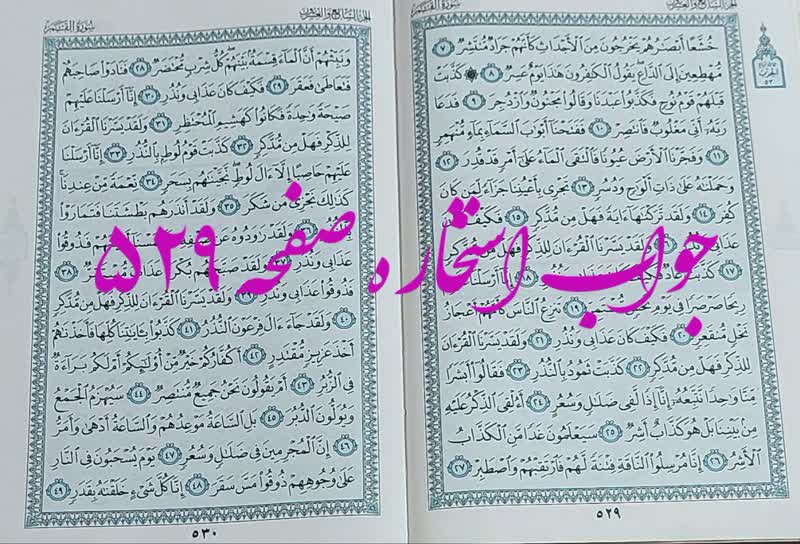 جواب استخاره صفحه ۵۲۹
الجزء السابع والعشرون
سورة القمر
خُشَّعًا أَبْصَٰرُهُمْ يَخْرُجُونَ مِنَ ٱلْأَجْدَاثِ كَأَنَّهُمْ جَرَادٌ مُّنتَشِرٌ ٧
مُّهْطِعِينَ إِلَى ٱلدَّاعِ يَقُولُ ٱلْكَٰفِرُونَ هَٰذَا يَوْمٌ عَسِرٌ ٨ كَذَّبَتْ
قَبْلَهُمْ قَوْمُ نُوحٍ فَكَذَّبُوا۟ عَبْدَنَا وَقَالُوا۟ مَجْنُونٌ وَٱزْدُجِرَ ٩ فَدَعَا
رَبَّهُۥٓ أَنِّي مَغْلُوبٌ فَٱنتَصِرْ ١٠ فَفَتَحْنَآ أَبْوَٰبَ ٱلسَّمَآءِ بِمَآءٍ مُّنْهَمِرٍ
١١ وَفَجَّرْنَا ٱلْأَرْضَ عُيُونًا فَٱلْتَقَى ٱلْمَآءُ عَلَىٰٓ أَمْرٍ قَدْ قُدِرَ ١٢
وَحَمَلْنَٰهُ عَلَىٰ ذَاتِ أَلْوَٰحٍ وَدُسُرٍ ١٣ تَجْرِي بِأَعْيُنِنَا جَزَآءً لِّمَن كَانَ
كُفِرَ ١٤ وَلَقَد تَّرَكْنَٰهَآ ءَايَةً فَهَلْ مِن مُّدَّكِرٍ ١٥ فَكَيْفَ كَانَ
عَذَابِي وَنُذُرِ ١٦ وَلَقَدْ يَسَّرْنَا ٱلْقُرْءَانَ لِلذِّكْرِ فَهَلْ مِن مُّدَّكِرٍ
١٧ كَذَّبَتْ عَادٌ فَكَيْفَ كَانَ عَذَابِي وَنُذُرِ ١٨ إِنَّآ أَرْسَلْنَا عَلَيْهِمْ
رِيحًا صَرْصَرًا فِي يَوْمِ نَحْسٍ مُّسْتَمِرٍّ ١٩ تَنزِعُ ٱلنَّاسَ كَأَنَّهُمْ أَعْجَازُ
نَخْلٍ مُّنقَعِرٍ ٢٠ فَكَيْفَ كَانَ عَذَابِي وَنُذُرِ ٢١ وَلَقَدْ يَسَّرْنَا ٱلْقُرْءَانَ
لِلذِّكْرِ فَهَلْ مِن مُّدَّكِرٍ ٢٢ كَذَّبَتْ ثَمُودُ بِٱلنُّذُرِ ٢٣ فَقَالُوٓا۟ أَبَشَرًا
مِّنَّا وَٰحِدًا نَّتَّبِعُهُۥٓ إِنَّآ إِذًا لَّفِي ضَلَٰلٍ وَسُعُرٍ ٢٤ أَءُلْقِيَ ٱلذِّكْرُ عَلَيْهِ
مِنۢ بَيْنِنَا بَلْ هُوَ كَذَّابٌ أَشِرٌ ٢٥ سَيَعْلَمُونَ غَدًا مَّنِ ٱلْكَذَّابُ
ٱلْأَشِرُ ٢٦ إِنَّا مُرْسِلُوا۟ ٱلنَّاقَةِ فِتْنَةً لَّهُمْ فَٱرْتَقِبْهُمْ وَٱصْطَبِرْ ٢٧
٥٢٩
الجزء السابع والعشرون
سورة القمر
وَنَبِّئْهُمْ أَنَّ ٱلْمَآءَ قِسْمَةٌۢ بَيْنَهُمْ كُلُّ شِرْبٍ مُّحْتَضَرٌ ٢٨ فَنَادَوْا۟ صَاحِبَهُمْ
فَتَعَاطَىٰ فَعَقَرَ ٢٩ فَكَيْفَ كَانَ عَذَابِي وَنُذُرِ ٣٠ إِنَّآ أَرْسَلْنَا عَلَيْهِمْ
صَيْحَةً وَٰحِدَةً فَكَانُوا۟ كَهَشِيمِ ٱلْمُحْتَظِرِ ٣١ وَلَقَدْ يَسَّرْنَا ٱلْقُرْءَانَ
لِلذِّكْرِ فَهَلْ مِن مُّدَّكِرٍ ٣٢ كَذَّبَتْ قَوْمُ لُوطٍۭ بِٱلنُّذُرِ ٣٣ إِنَّآ أَرْسَلْنَا
عَلَيْهِمْ حَاصِبًا إِلَّآ ءَالَ لُوطٍ نَّجَّيْنَٰهُم بِسَحَرٍ ٣٤ نِّعْمَةً مِّنْ عِندِنَا
كَذَٰلِكَ نَجْزِي مَن شَكَرَ ٣٥ وَلَقَدْ أَنذَرَهُم بَطْشَتَنَا فَتَمَارَوْا۟
بِٱلنُّذُرِ ٣٦ وَلَقَدْ رَٰوَدُوهُ عَن ضَيْفِهِۦ فَطَمَسْنَآ أَعْيُنَهُمْ فَذُوقُوا۟
عَذَابِي وَنُذُرِ ٣٧ وَلَقَدْ صَبَّحَهُم بُكْرَةً عَذَابٌ مُّسْتَقِرٌّ ٣٨
فَذُوقُوا۟ عَذَابِي وَنُذُرِ ٣٩ وَلَقَدْ يَسَّرْنَا ٱلْقُرْءَانَ لِلذِّكْرِ فَهَلْ مِن مُّدَّكِرٍ
٤٠ وَلَقَدْ جَآءَ ءَالَ فِرْعَوْنَ ٱلنُّذُرُ ٤١ كَذَّبُوا۟ بِـَٔايَٰتِنَا كُلِّهَا فَأَخَذْنَٰهُمْ
أَخْذَ عَزِيزٍ مُّقْتَدِرٍ ٤٢ أَكُفَّارُكُمْ خَيْرٌ مِّنْ أُو۟لَٰٓئِكُمْ أَمْ لَكُم بَرَآءَةٌ
فِي ٱلزُّبُرِ ٤٣ أَمْ يَقُولُونَ نَحْنُ جَمِيعٌ مُّنتَصِرٌ ٤٤ سَيُهْزَمُ ٱلْجَمْعُ
وَيُوَلُّونَ ٱلدُّبُرَ ٤٥ بَلِ ٱلسَّاعَةُ مَوْعِدُهُمْ وَٱلسَّاعَةُ أَدْهَىٰ وَأَمَرُّ
٤٦ إِنَّ ٱلْمُجْرِمِينَ فِي ضَلَٰلٍ وَسُعُرٍ ٤٧ يَوْمَ يُسْحَبُونَ فِي ٱلنَّارِ
عَلَىٰ وُجُوهِهِمْ ذُوقُوا۟ مَسَّ سَقَرَ ٤٨ إِنَّا كُلَّ شَيْءٍ خَلَقْنَٰهُ بِقَدَرٍ ٤٩
٥٣٠